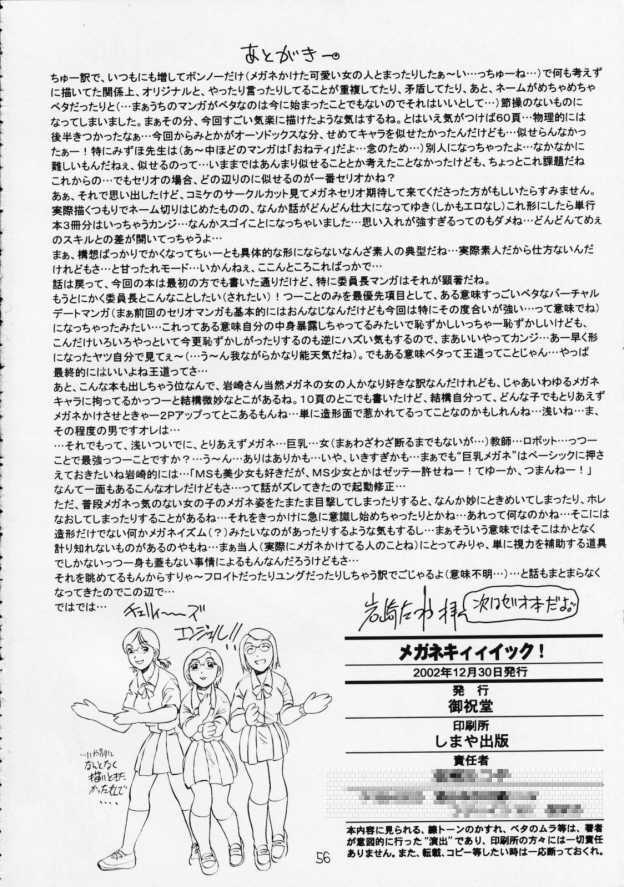 あとがきー
ちゅー訳で、いつもにも増してボンノーだけ(メガネかけた可愛い女の人とまったりしたぁ〜い…っちゅーね…)で何も考えず
に描いてた関係上、オリジナルと、やったり言ったりしてることが重複してたり、矛盾してたり、あと、ネームがめちゃめちゃ
ベタだったりと(…まぁうちのマンガがベタなのは今に始まったことでもないのでそれはいいとして…)節操のないものに
なってしまいました。まぁその分、今回すごい気楽に描けたような気はするね。とはいえ気がつけば60頁…物理的には
後半きつかったなぁ…今回からみとかがオーソドックスな分、せめてキャラを似せたかったんだけども…似せらんなかっ
たぁー!特にみずほ先生は(あ〜中ほどのマンガは「おねティ」だよ…念のため…)別人になっちゃったよ…なかなかに
難しいもんだねぇ、似せるのって…いままではあんまり似せることとか考えたことなかったけども、ちょっとこれ課題だね
これからの…でもセリオの場合、どの辺りのに似せるのが一番セリオかね?
あぁ、それで思い出したけど、コミケのサークルカット見てメガネセリオ期待して来てくださった方がもしいたらすみません。
実際描くつもりでネーム切りはじめたものの、なんか話がどんどん壮大になってゆき(しかもエロなし)これ形にしたら単行
本3冊分はいっちゃうカンジ…なんかスゴイことになっちゃいました…思い入れが強すぎるってのもダメね…どんどんてめぇ
のスキルとの差が開いてっちゃうよ…
まぁ、構想ばっかりでかくなってちぃーとも具体的な形にならないなんざ素人の典型だね…実際素人だから仕方ないんだ
けれどもさ…と甘ったれモード…いかんねぇ、ここんとこればっかで…
話は戻って、今回の本は最初の方でも書いた通りだけど、特に委員長マンガはそれが顕著だね。
もうとにかく委員長とこんなことしたい(されたい)!つーことのみを最優先項目として、ある意味すっごいベタなバーチャル
デートマンガ(まぁ前回のセリオマンガも基本的にはおんなじなんだけども今回は特にその度合いが強い…って意味でね)
になっちゃったみたい…これってある意味自分の中身暴露しちゃってるみたいで恥ずかしいっちゃー恥ずかしいけども、
こんだけいろいろやっといて今更恥ずかしがったりするのも逆にハズい気もするので、まあいいやってカンジ…あー早く形
になったヤツ自分で見てぇ〜(…う〜ん我ながらかなり能天気だな)。でもある意味ベタって王道ってことじゃん…やっぱ
最終的にはいいよね王道ってさ…
あと、こんな本も出しちゃう位なんで、岩崎さん当然メガネの女の人かなり好きな訳なんだけれども、じゃあいわゆるメガネ
キャラに拘ってるかっつーと結構微妙なとこがあるね。10頁のとこでも書いたけど、結構自分って、どんな子でもとりあえず
メガネかけさせときゃー2Pアップってとこあるもんね…単に造形面で惹かれてるってことなのかもしれんね…浅いね…ま、
その程度の男ですオレは…
…それでもって、浅いついでに、とりあえずメガネ…巨乳…女(まぁわざわざ断るまでもないが…)教師…ロボット…っつー
ことで最強っつーことですか?…う〜ん…ありはありかも…いや、いきすぎかも…まぁでも“巨乳メガネ”はベーシックに押さ
えておきたいね岩崎的には…「MSも美少女も好きだが、MS少女とかはゼッテー許せねー!てゆーか、つまんねー!」
なんて一面もあるこんなオレだけどもさ…って話がズレてきたので起動修正…
ただ、普段メガネっ気のない女の子のメガネ姿をたまたま目撃してしまったりすると、なんか妙にときめいてしまったり、ホレ
なおしてしまったりすることがあるね…それをきっかけに急に意識し始めちゃったりとかね…あれって何なのかね…そこには
造形だけでない何かメガネイズム(?)みたいなのがあったりするような気もするし…まぁそういう意味ではそこはかとなく
計り知れないものがあるのやもね…まぁ当人(実際にメガネかけてる人のことね)にとってみりゃ、単に視力を補助する道具
でしかないっつー身も蓋もない事情によるもんなんだろうけどもさ…
それを眺めてるもんからすりゃ〜フロイトだったりユングだったりしちゃう訳でごじゃるよ(意味不明…)…と話もまとまらなく
なってきたのでこの辺で…
ではでは…
岩崎たつや 拝。
次はゼオ本だよ
チェリィ〜〜ズ
エンジェル!!
なんとなく
メガネキィィイック!
2002年12月30日発行
発 行
御祝堂
印刷所
しまや出版
責任者
本内容に見られる、線トーンのかすれ、ベタのムラ等は、著者
が意図的に行った“演出”であり、印刷所の方々には一切責任
ありません。また、転載、コピー等したい時は一応断っておくれ。
56